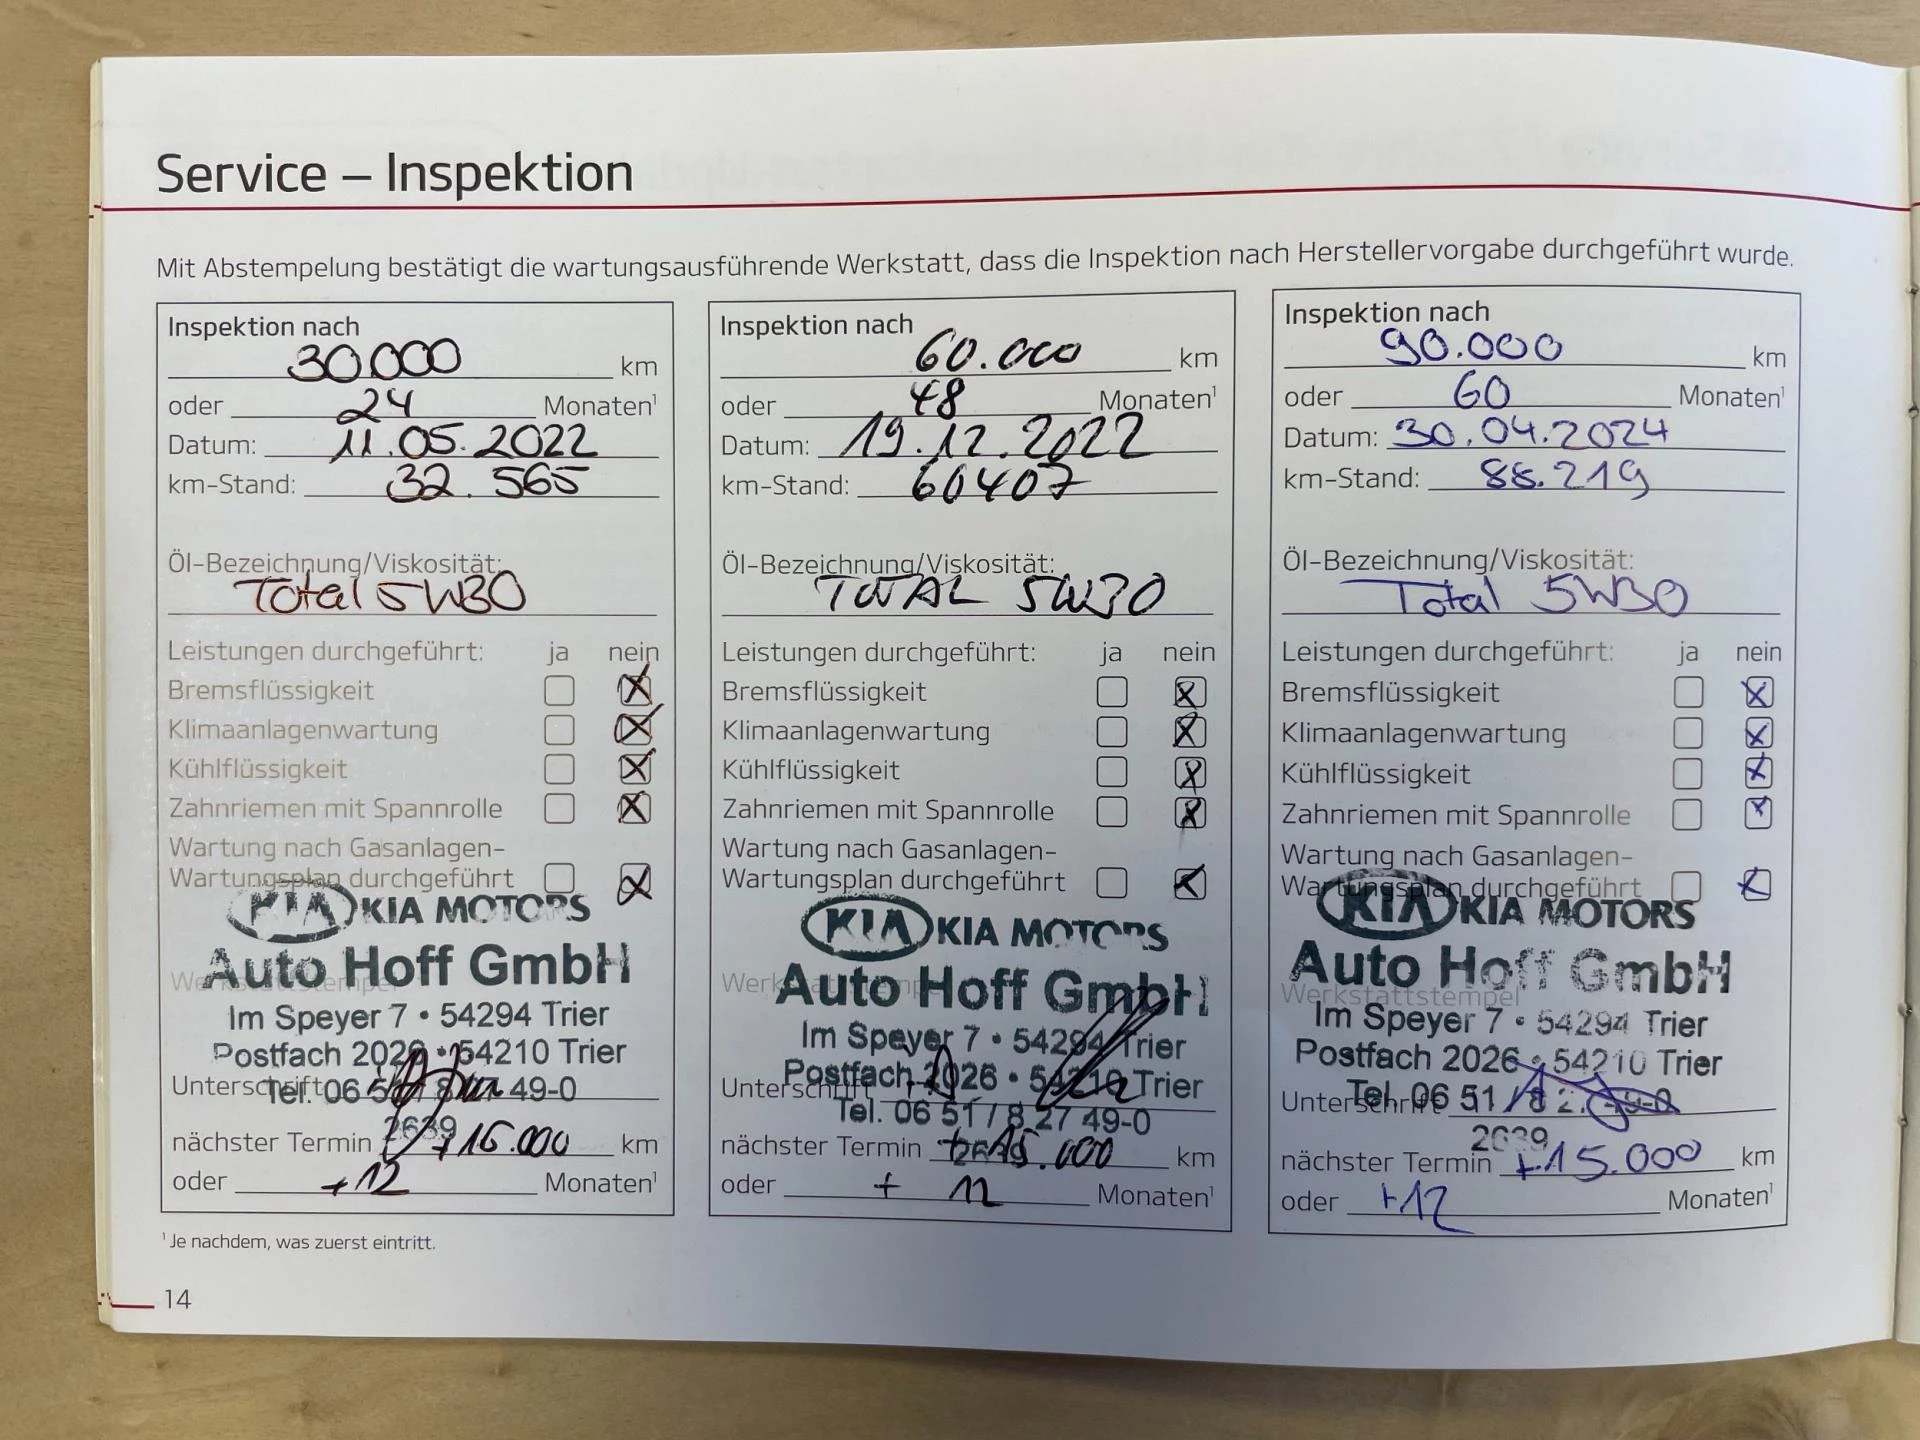 Service – Inspektion
Mit Abstempelung bestätigt die wartungsausführende Werkstatt, dass die Inspektion nach Herstellervorgabe durchgeführt wurde.
Inspektion nach
30.000 km
oder 24 Monaten¹
Datum: 11.05.2022
km-Stand: 32.565
Öl-Bezeichnung/Viskosität:
Total 5W30
Leistungen durchgeführt: ja nein
Bremsflüssigkeit
Klimaanlagenwartung
Kühlflüssigkeit
Zahnriemen mit Spannrolle
Wartung nach Gasanlagen-
Wartungsplan durchgeführt
KIA KIA MOTORS
Auto Hoff GmbH
Werkstattstempel
Im Speyer 7 • 54294 Trier
Postfach 2026 • 54210 Trier
Unterschrift
Tel. 06 51 / 8 27 49-0
2639
nächster Termin +15.000 km
oder +12 Monaten¹
Inspektion nach
60.000 km
oder 48 Monaten¹
Datum: 19.12.2022
km-Stand: 60407
Öl-Bezeichnung/Viskosität:
TOTAL 5W30
Leistungen durchgeführt: ja nein
Bremsflüssigkeit
Klimaanlagenwartung
Kühlflüssigkeit
Zahnriemen mit Spannrolle
Wartung nach Gasanlagen-
Wartungsplan durchgeführt
KIA KIA MOTORS
Auto Hoff GmbH
Werkstattstempel
Im Speyer 7 • 54294 Trier
Postfach 2026 • 54210 Trier
Unterschrift
Tel. 06 51 / 8 27 49-0
2639
nächster Termin +15.000 km
oder + 12 Monaten¹
Inspektion nach
90.000 km
oder 60 Monaten¹
Datum: 30.04.2024
km-Stand: 88.219
Öl-Bezeichnung/Viskosität:
Total 5W30
Leistungen durchgeführt: ja nein
Bremsflüssigkeit
Klimaanlagenwartung
Kühlflüssigkeit
Zahnriemen mit Spannrolle
Wartung nach Gasanlagen-
Wartungsplan durchgeführt
KIA KIA MOTORS
Auto Hoff GmbH
Werkstattstempel
Im Speyer 7 • 54294 Trier
Postfach 2026 • 54210 Trier
Unterschrift
Tel. 06 51 / 8 27 49-0
2639
nächster Termin +15.000 km
oder +12 Monaten¹
¹ Je nachdem, was zuerst eintritt.
14